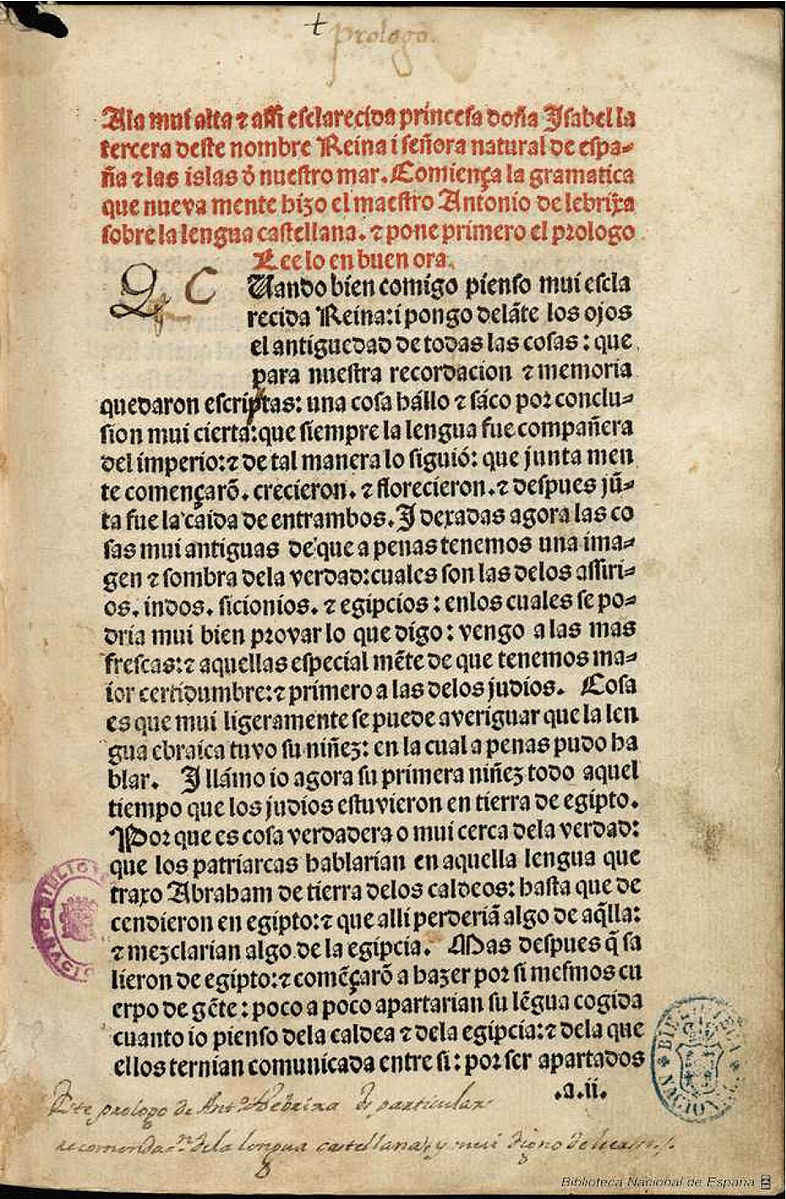 prologo.
A la mui alta ⁊ assi esclarecida princesa doña Isabel la
tercera deste nombre Reina i señora natural de espa-
ña ⁊ las islas d̃ nuestro mar. Comiença la gramatica
que nueva mente hizo el maestro Antonio de lebrixa
sobre la lengua castellana. ⁊ pone primero el prologo
Lee lo en buen ora.
C
Uando bien comigo pienso mui escla
recida Reina: i pongo delãte los ojos
el antiguedad de todas las cosas: que
para nuestra recordacion ⁊ memoria
quedaron escriptas: una cosa hállo ⁊ sáco por conclu-
sion mui cierta: que siempre la lengua fue compañera
del imperio: ⁊ de tal manera lo siguió: que junta men
te començarõ. crecieron. ⁊ florecieron. ⁊ despues jũ-
ta fue la caida de entrambos. I dexadas agora las co
sas mui antiguas de que a penas tenemos una ima-
gen ⁊ sombra dela verdad: cuales son las delos assiri-
os. indos. sicionios. ⁊ egipcios: enlos cuales se po-
dria mui bien provar lo que digo: vengo a las mas
frescas: ⁊ aquellas especial mẽte de que tenemos ma-
ior certidumbre: ⁊ primero a las delos judios. Cosa
es que mui ligeramente se puede averiguar que la len
gua ebraica tuvo su niñez: en la cual a penas pudo ha
blar. I llámo io agora su primera niñez todo aquel
tiempo que los judios estuvieron en tierra de egipto.
Por que es cosa verdadera o mui cerca dela verdad:
que los patriarcas hablarian en aquella lengua que
traxo Abraham de tierra delos caldeos: hasta que de
cendieron en egipto: ⁊ que alli perderiã algo de aq̃lla:
⁊ mezclarian algo de la egipcia. Mas despues q̃ sa
lieron de egipto: ⁊ comẽçarõ a hazer por si mesmos cu
erpo de gẽte: poco a poco apartarian su lẽgua cogida
cuanto io pienso dela caldea ⁊ dela egipcia: ⁊ dela que
ellos ternian comunicada entre si: por ser apartados
.a.ii.
Este prologo de Antº Lebrixa es particular
recomendaⁿ. de la lengua castellana, y mui digno de
Biblioteca Nacional de España